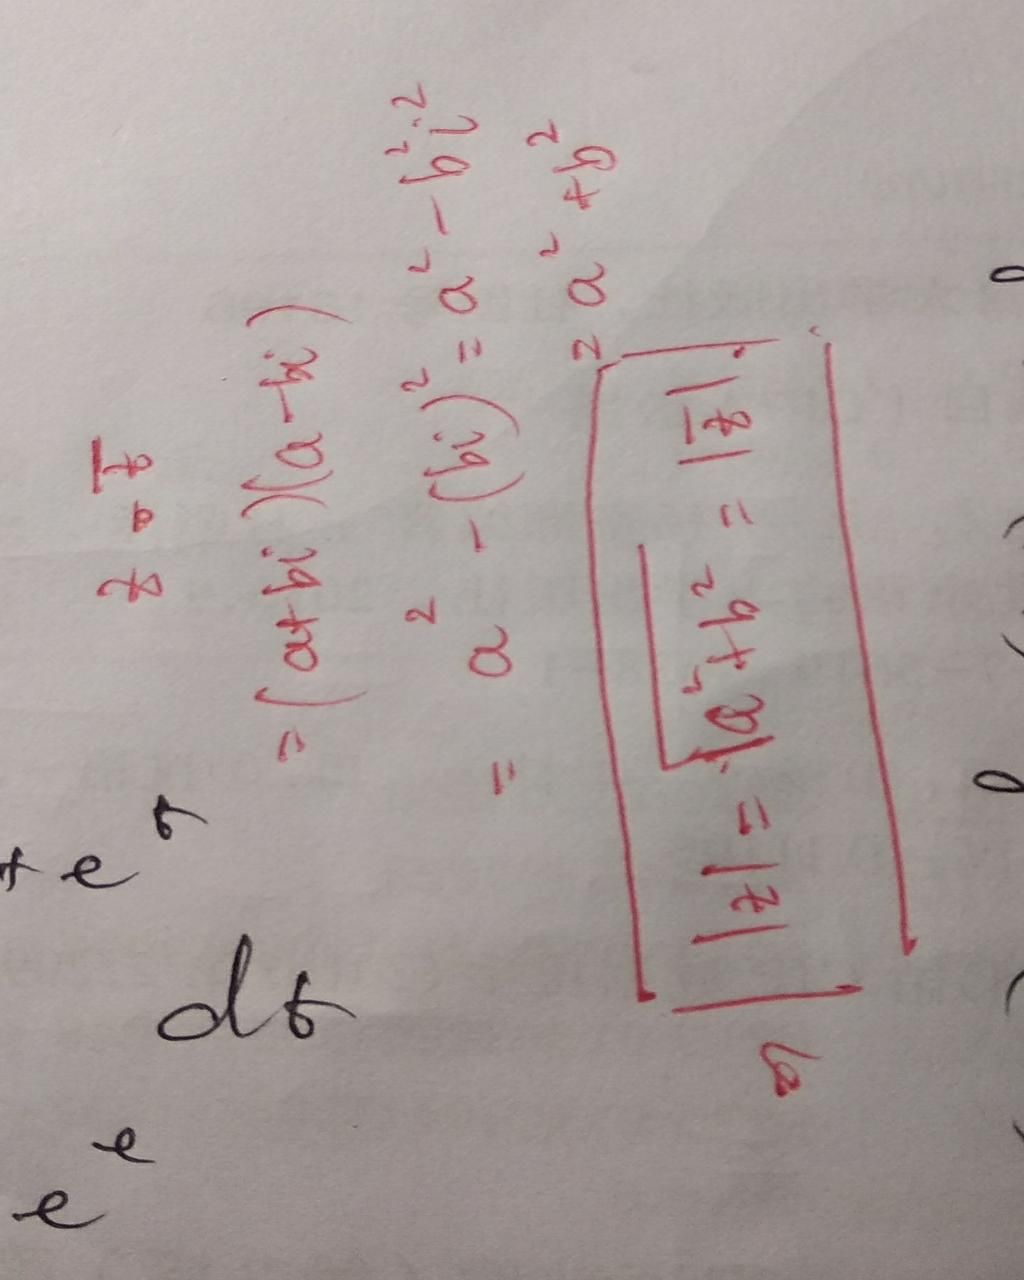 z · z̅
= (a+bi)(a-bi)
= a² - (bi)² = a² - b²i²
= a² + b²
|z| = √a²+b² = |z̅|.
+ e
dt
e^e